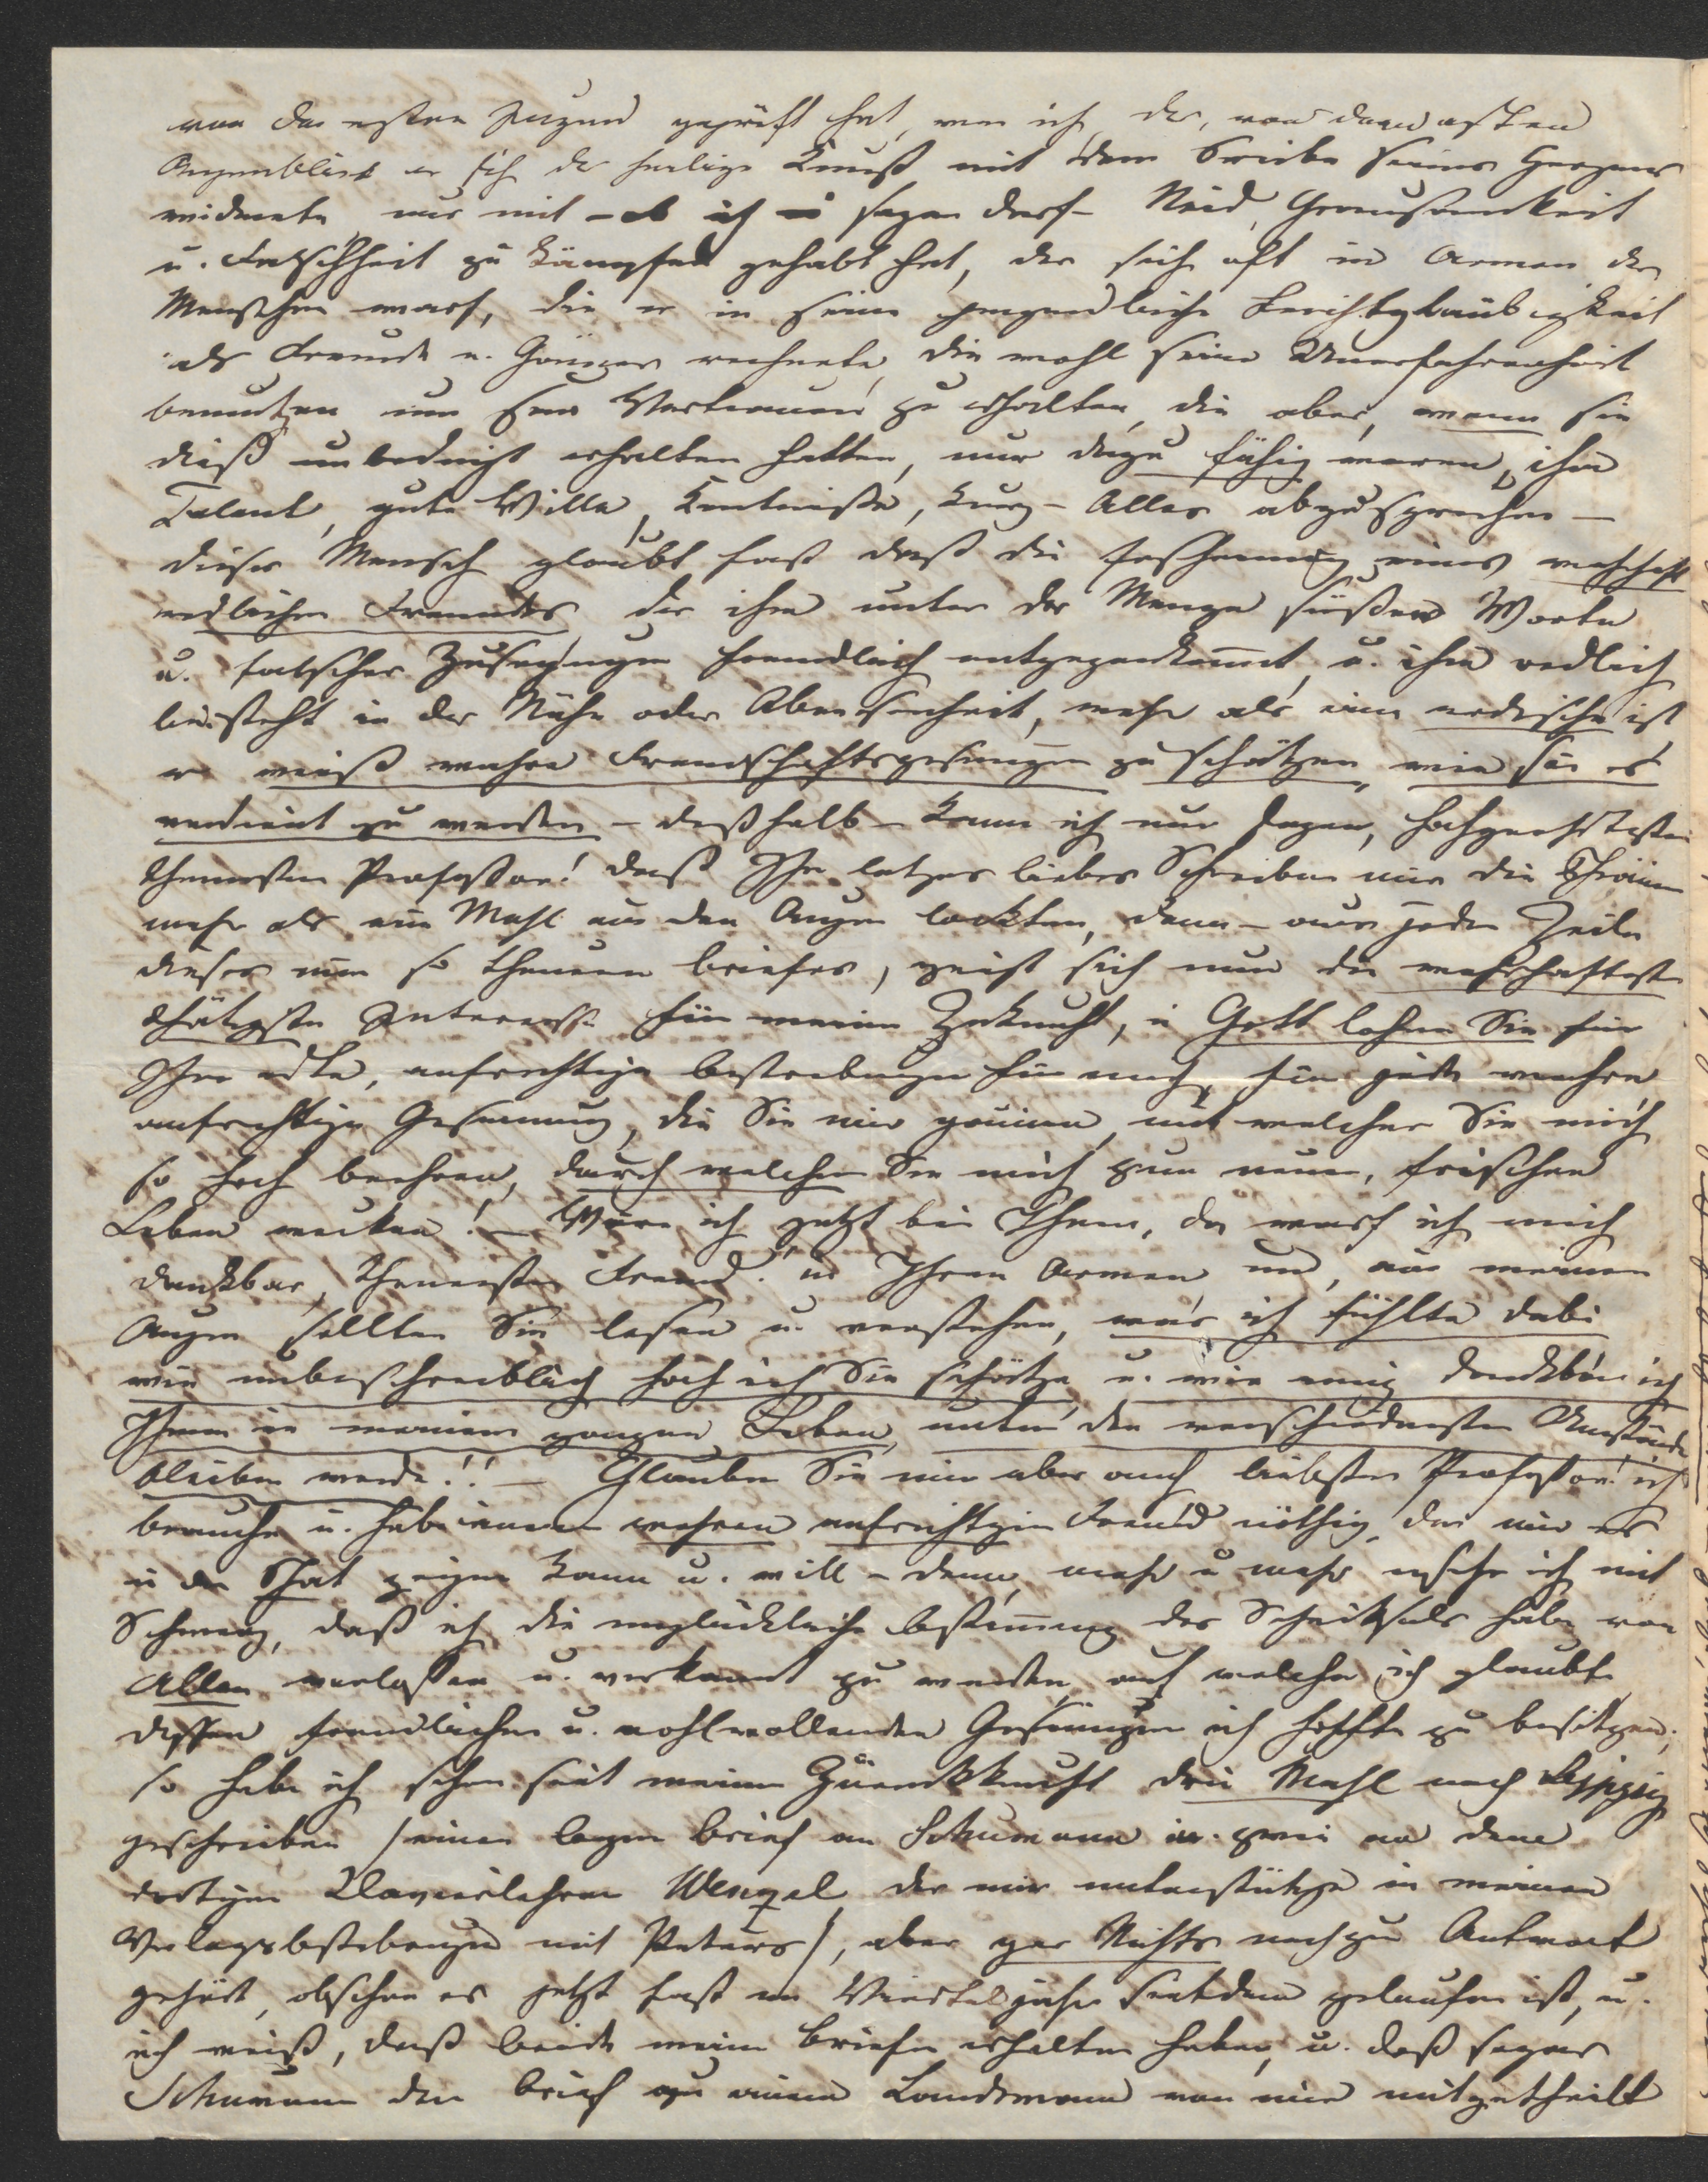 von der ersten Jugend geprüft hat, wen ich, der, von dem ersten
Augenblick er sich der heilige Kunst mit dem Triebe seines Herzens
widmete nur mit – ob ich so sagen darf – Neid, Grausamkeit
u. Falschheit zu kämpfen gehabt hat, der sich oft in Armen der
Menschen warf, die er in seine jugendliche Leichtgläubigkeit
als Freunde u. Gönner rechnete, die wohl seine Unerfahrenheit
benutzen um sein Vertrauen zu erhalten, die aber, wenn sie
dieß unbedingt erhalten hatten, nur dazu fähig waren, ihm
Talent, gute Wille, Kentniße, kurz – Alles abzusprechen –
dieser Mensch glaubt fast daß die Erscheinung eines wahrhaft
redlichen Freundes der ihm unter der Menge süßen Worte
u. falscher Zusagungen freundlich entgegenkom̄t, u. ihm redlich
beisteht in der Nähe oder Abwesenheit, mehr als eine irdische ist
er weiß wahre Freundschaftsgesinnungen zu schätzen, wie sie es
verdient zu werden – deßhalb – kann ich nur sagen, hochgeehrtester
theuersten Professor! daß Ihr letzes liebes Schreiben mir die Thränen
mehr als ein Mahl aus den Augen lockten, denn – aus jeder Zeile
dieses mir so theuren Briefes, zeigt sich nur die wahrhaftest
thätigste Interesse für meine Zukunft, u Gott lohne Sie für
Ihre edle, aufrichtige Bestrebungen für mich, für jede wahre
aufrichtige Gesinnung, die Sie mir gönnen, mit welcher Sie mich
so hoch beehren, durch welche Sie mich zum neuen, frischen
Leben wecken! – Wäre ich jetzt bei Ihnen, da warf ich mich
dankbar, theuersten Freund! in Ihren Armen und, aus meinen
Augen sollten Sie lesen u. verstehen, was ich fühlte dabei
wie unbeschreiblich hoch ich Sie schätze, u. wie ewig dankbar ich
Ihnen in meinem ganzen Leben, unter den verschiedensten Umstände
bleiben werde!! – Glauben Sie mir aber auch liebsten Professor! ich
brauche u. habe einen wahren aufrichtigen Freund nöthig, der mir es
in der That zeigen kann u. will – denn, mehr u mehr ersehe ich mit
Schmerz, daß ich die unglückliche Bestim̄ung des Schicksals habe von
Allen verlassen u. verkannt zu werden, auf welche ich glaubte
dessen freundlichen u. wohlwollenden Gesinnungen ich hoffte zu besitzen;
so habe ich schon seit meiner Zurückkunft drei Mahl nach Leipzig
geschrieben /einen langen Brief an Schumann u. zwei an dem
dortigen Klavierlehrer Wenzel, der mir unterstützte in meinen
Verlagsbestrebungen mit Peters/, aber gar Nichts noch zu Antwort
gehört, obschon es jetzt fast ein Vierteljahr seitdem gelaufen ist, u.
ich weiß, daß beide meine Briefe erhalten haben, u. daß sogar
Schumann den Brief zu einem Landsmann von mir mitgetheilt